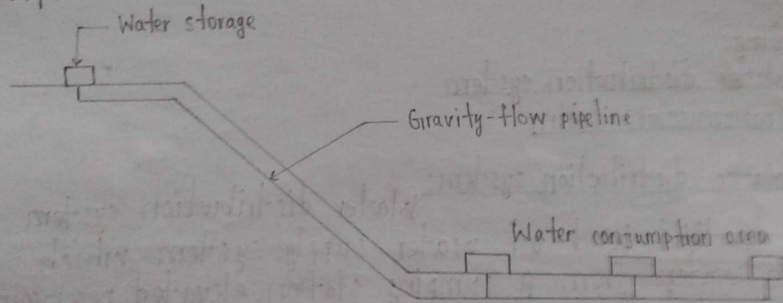 Water storage
Gravity-flow pipeline
Water consumption area